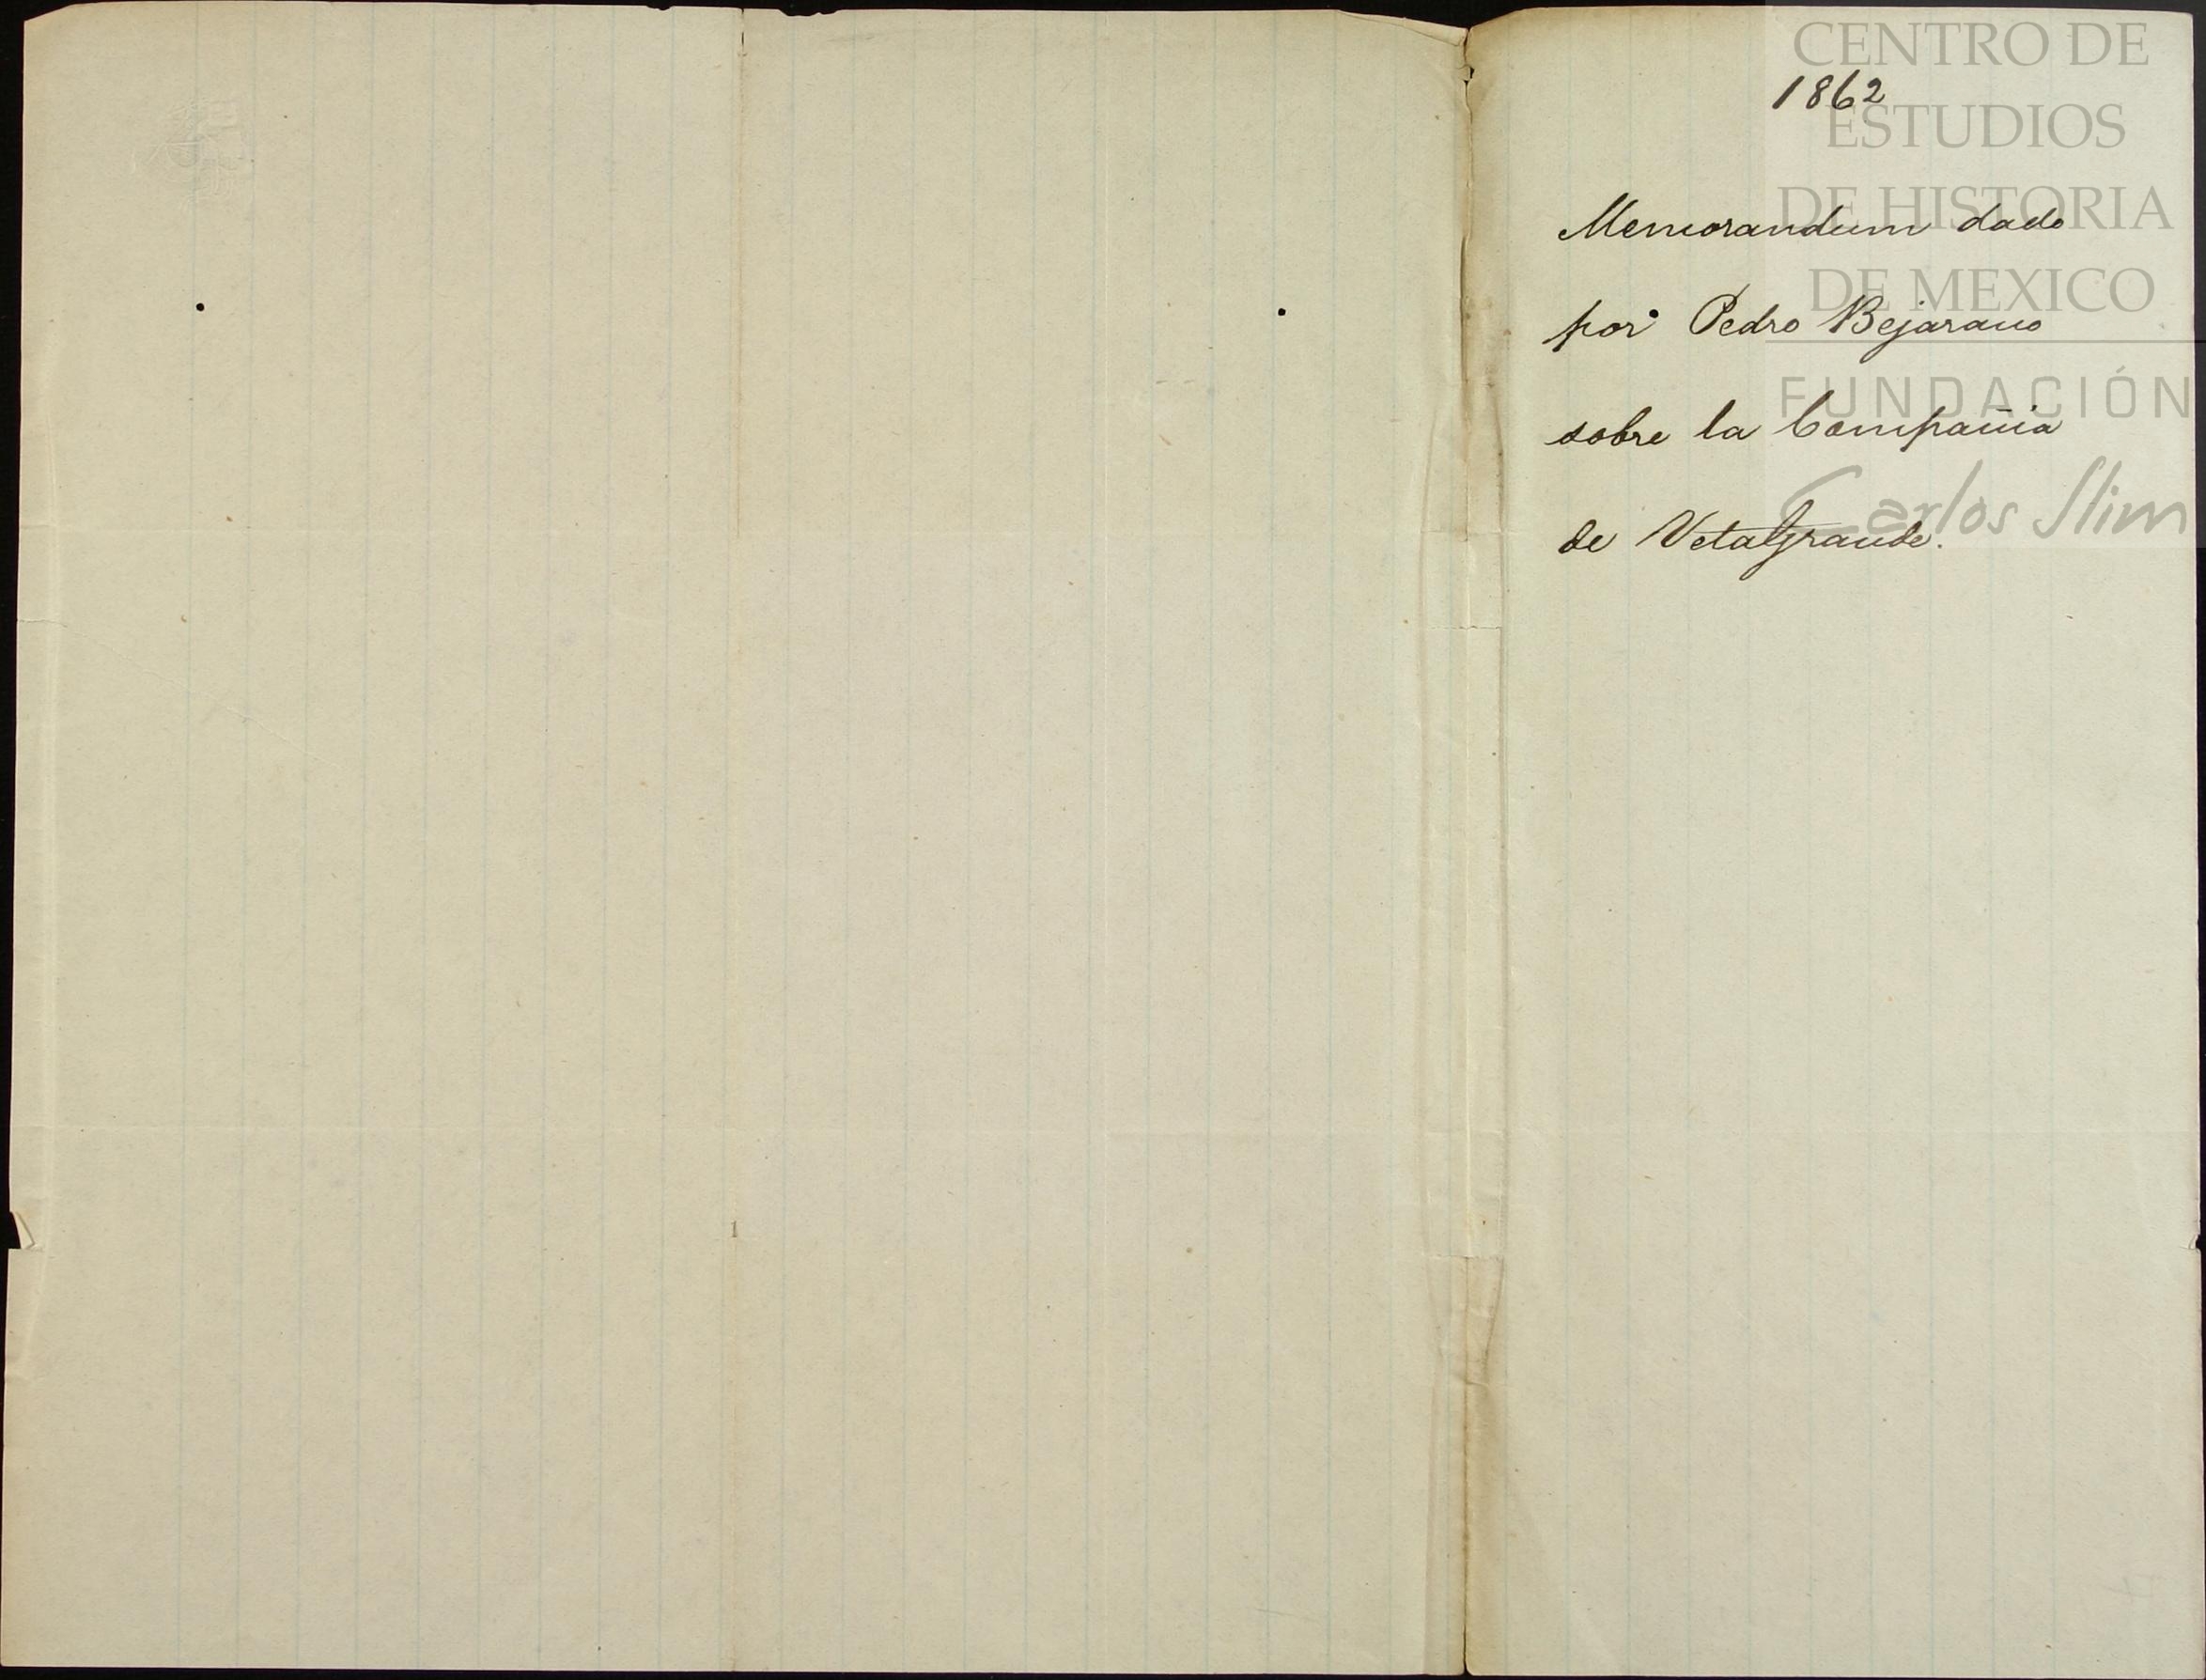 1862
Memorandum dado
por Pedro Bejarano
sobre la Compañia
de VetaGrande.
CENTRO DE
ESTUDIOS
DE HISTORIA
DE MEXICO
FUNDACIÓN
Carlos Slim